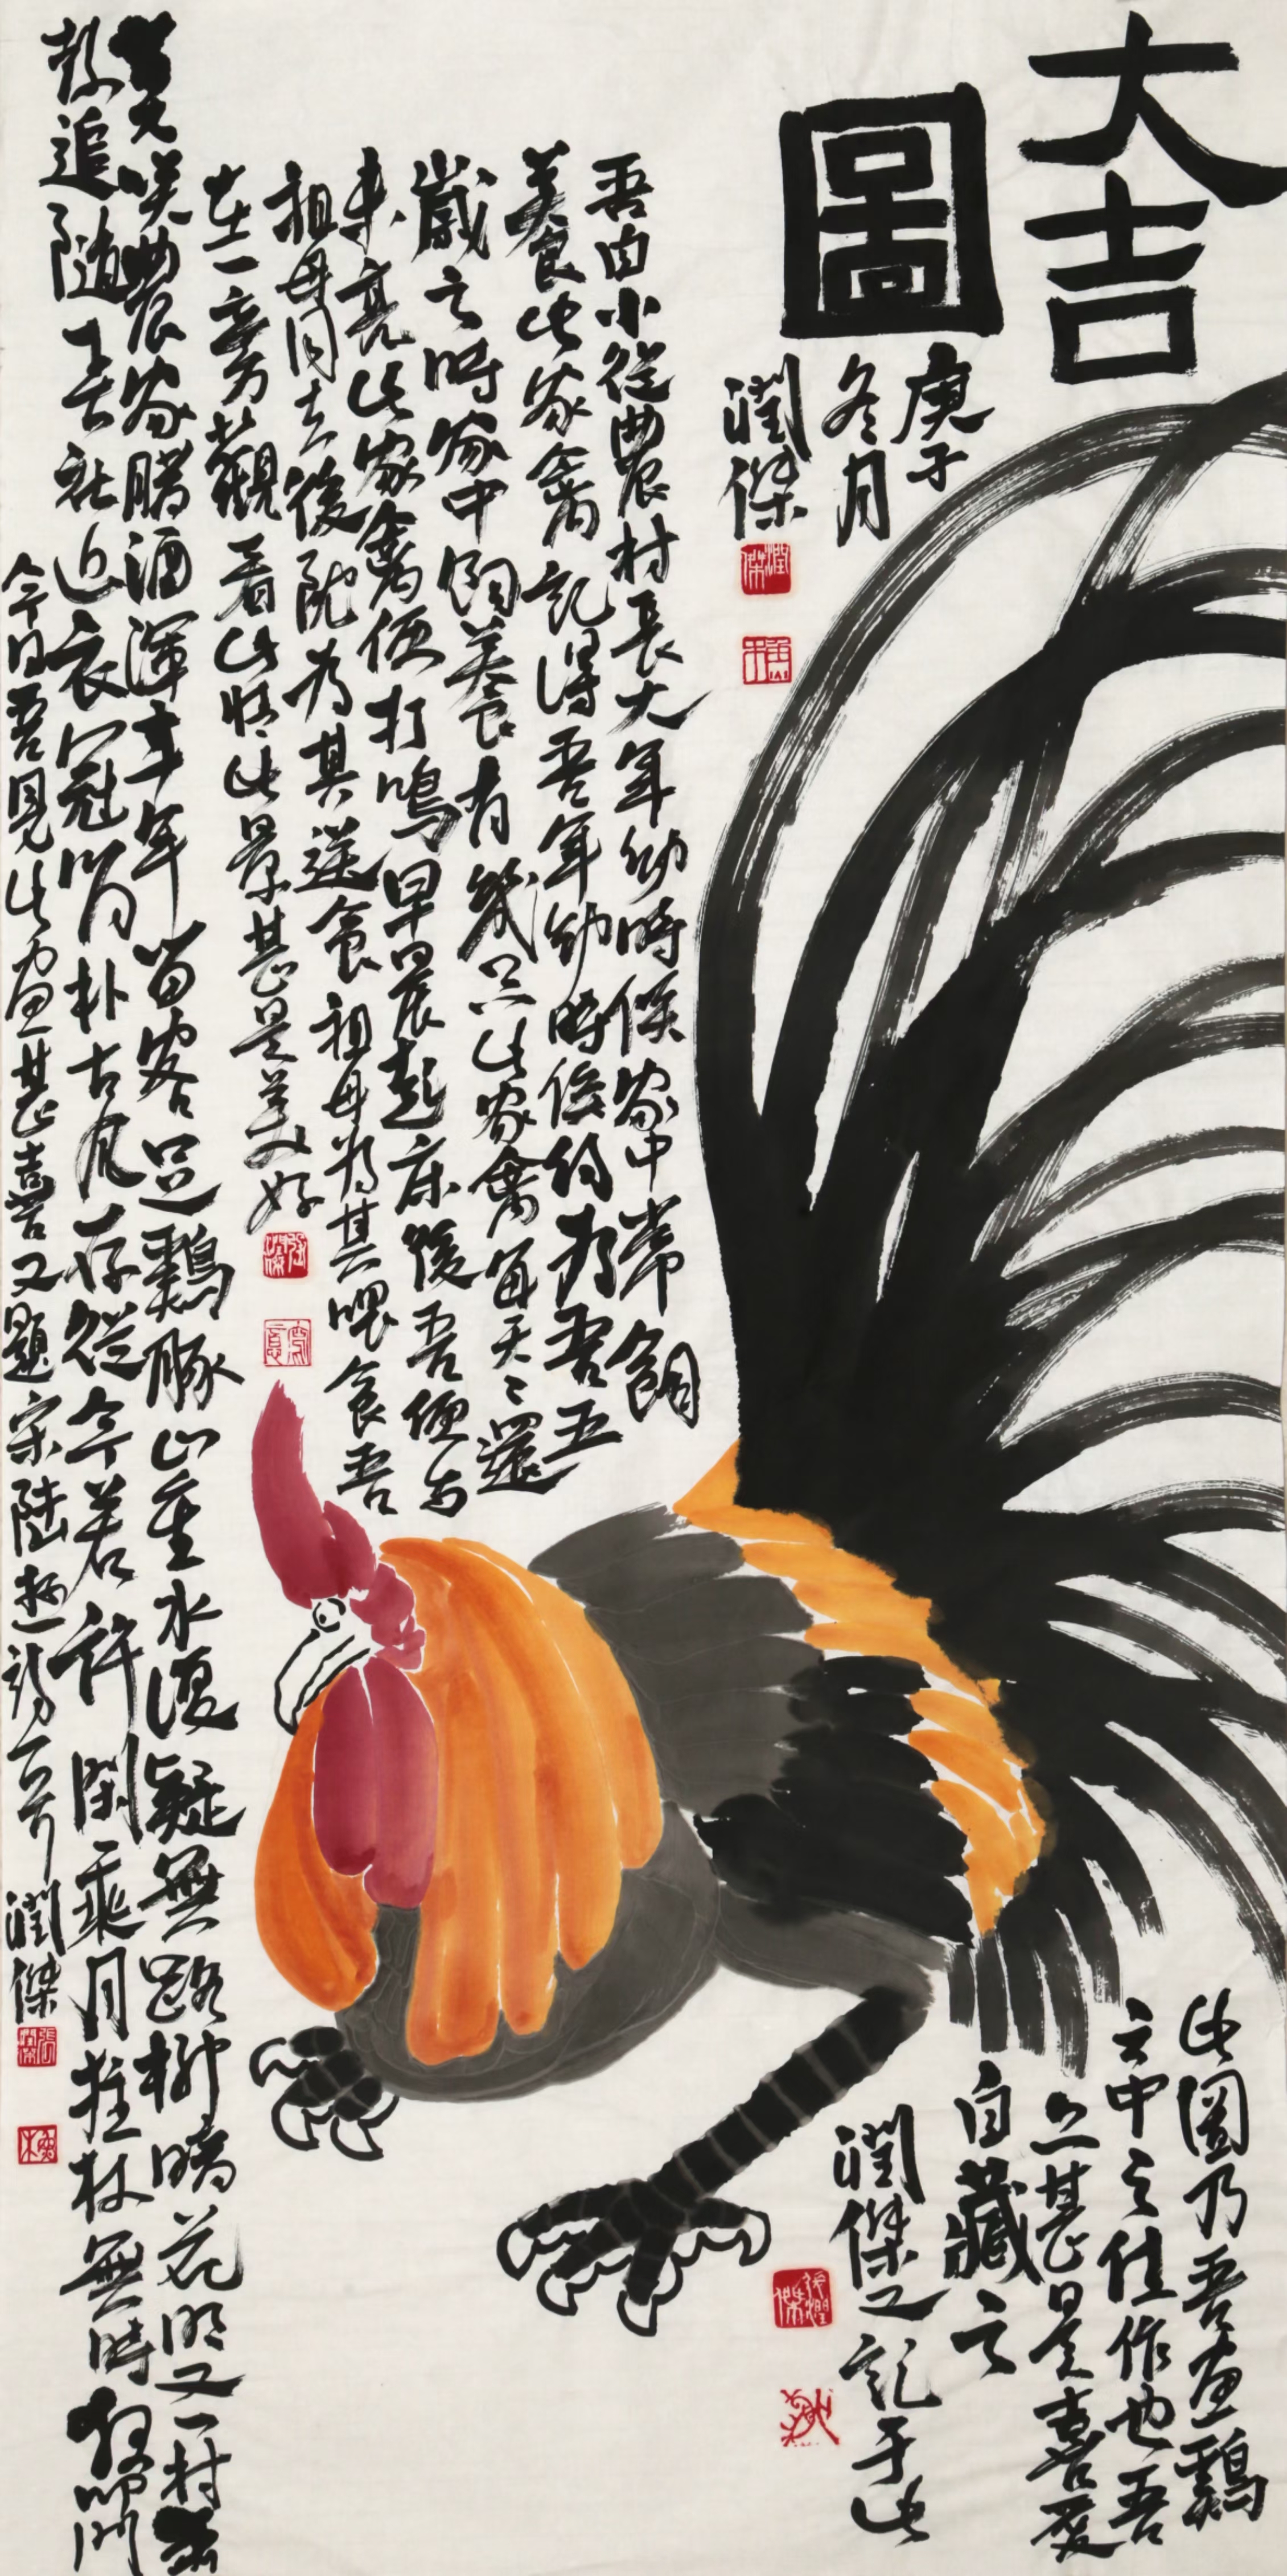 大吉
圖
庚子
冬月
潤傑
潤傑
吾自小從農村長大年幼時候家中常飼
養此家禽記得吾年幼時候約為吾五
歲之時家中飼養有幾只此家禽每天天還
未亮此家禽便打鳴早晨起床後吾便與
祖母同去後院為其送食祖母為其喂食吾
在一旁觀看此情此景甚是美好
莫笑農家臘酒渾豐年留客足鷄豚山重水復疑無路柳暗花明又一村簫
鼓追隨春社近衣冠簡朴古風存從今若許閑乘月拄杖無時夜叩門
今日吾見此畫甚喜又題宋陸遊詩一首 潤傑
此圖乃吾畫鷄
之中之佳作也吾
甚是喜愛
自藏之
潤傑又記于此